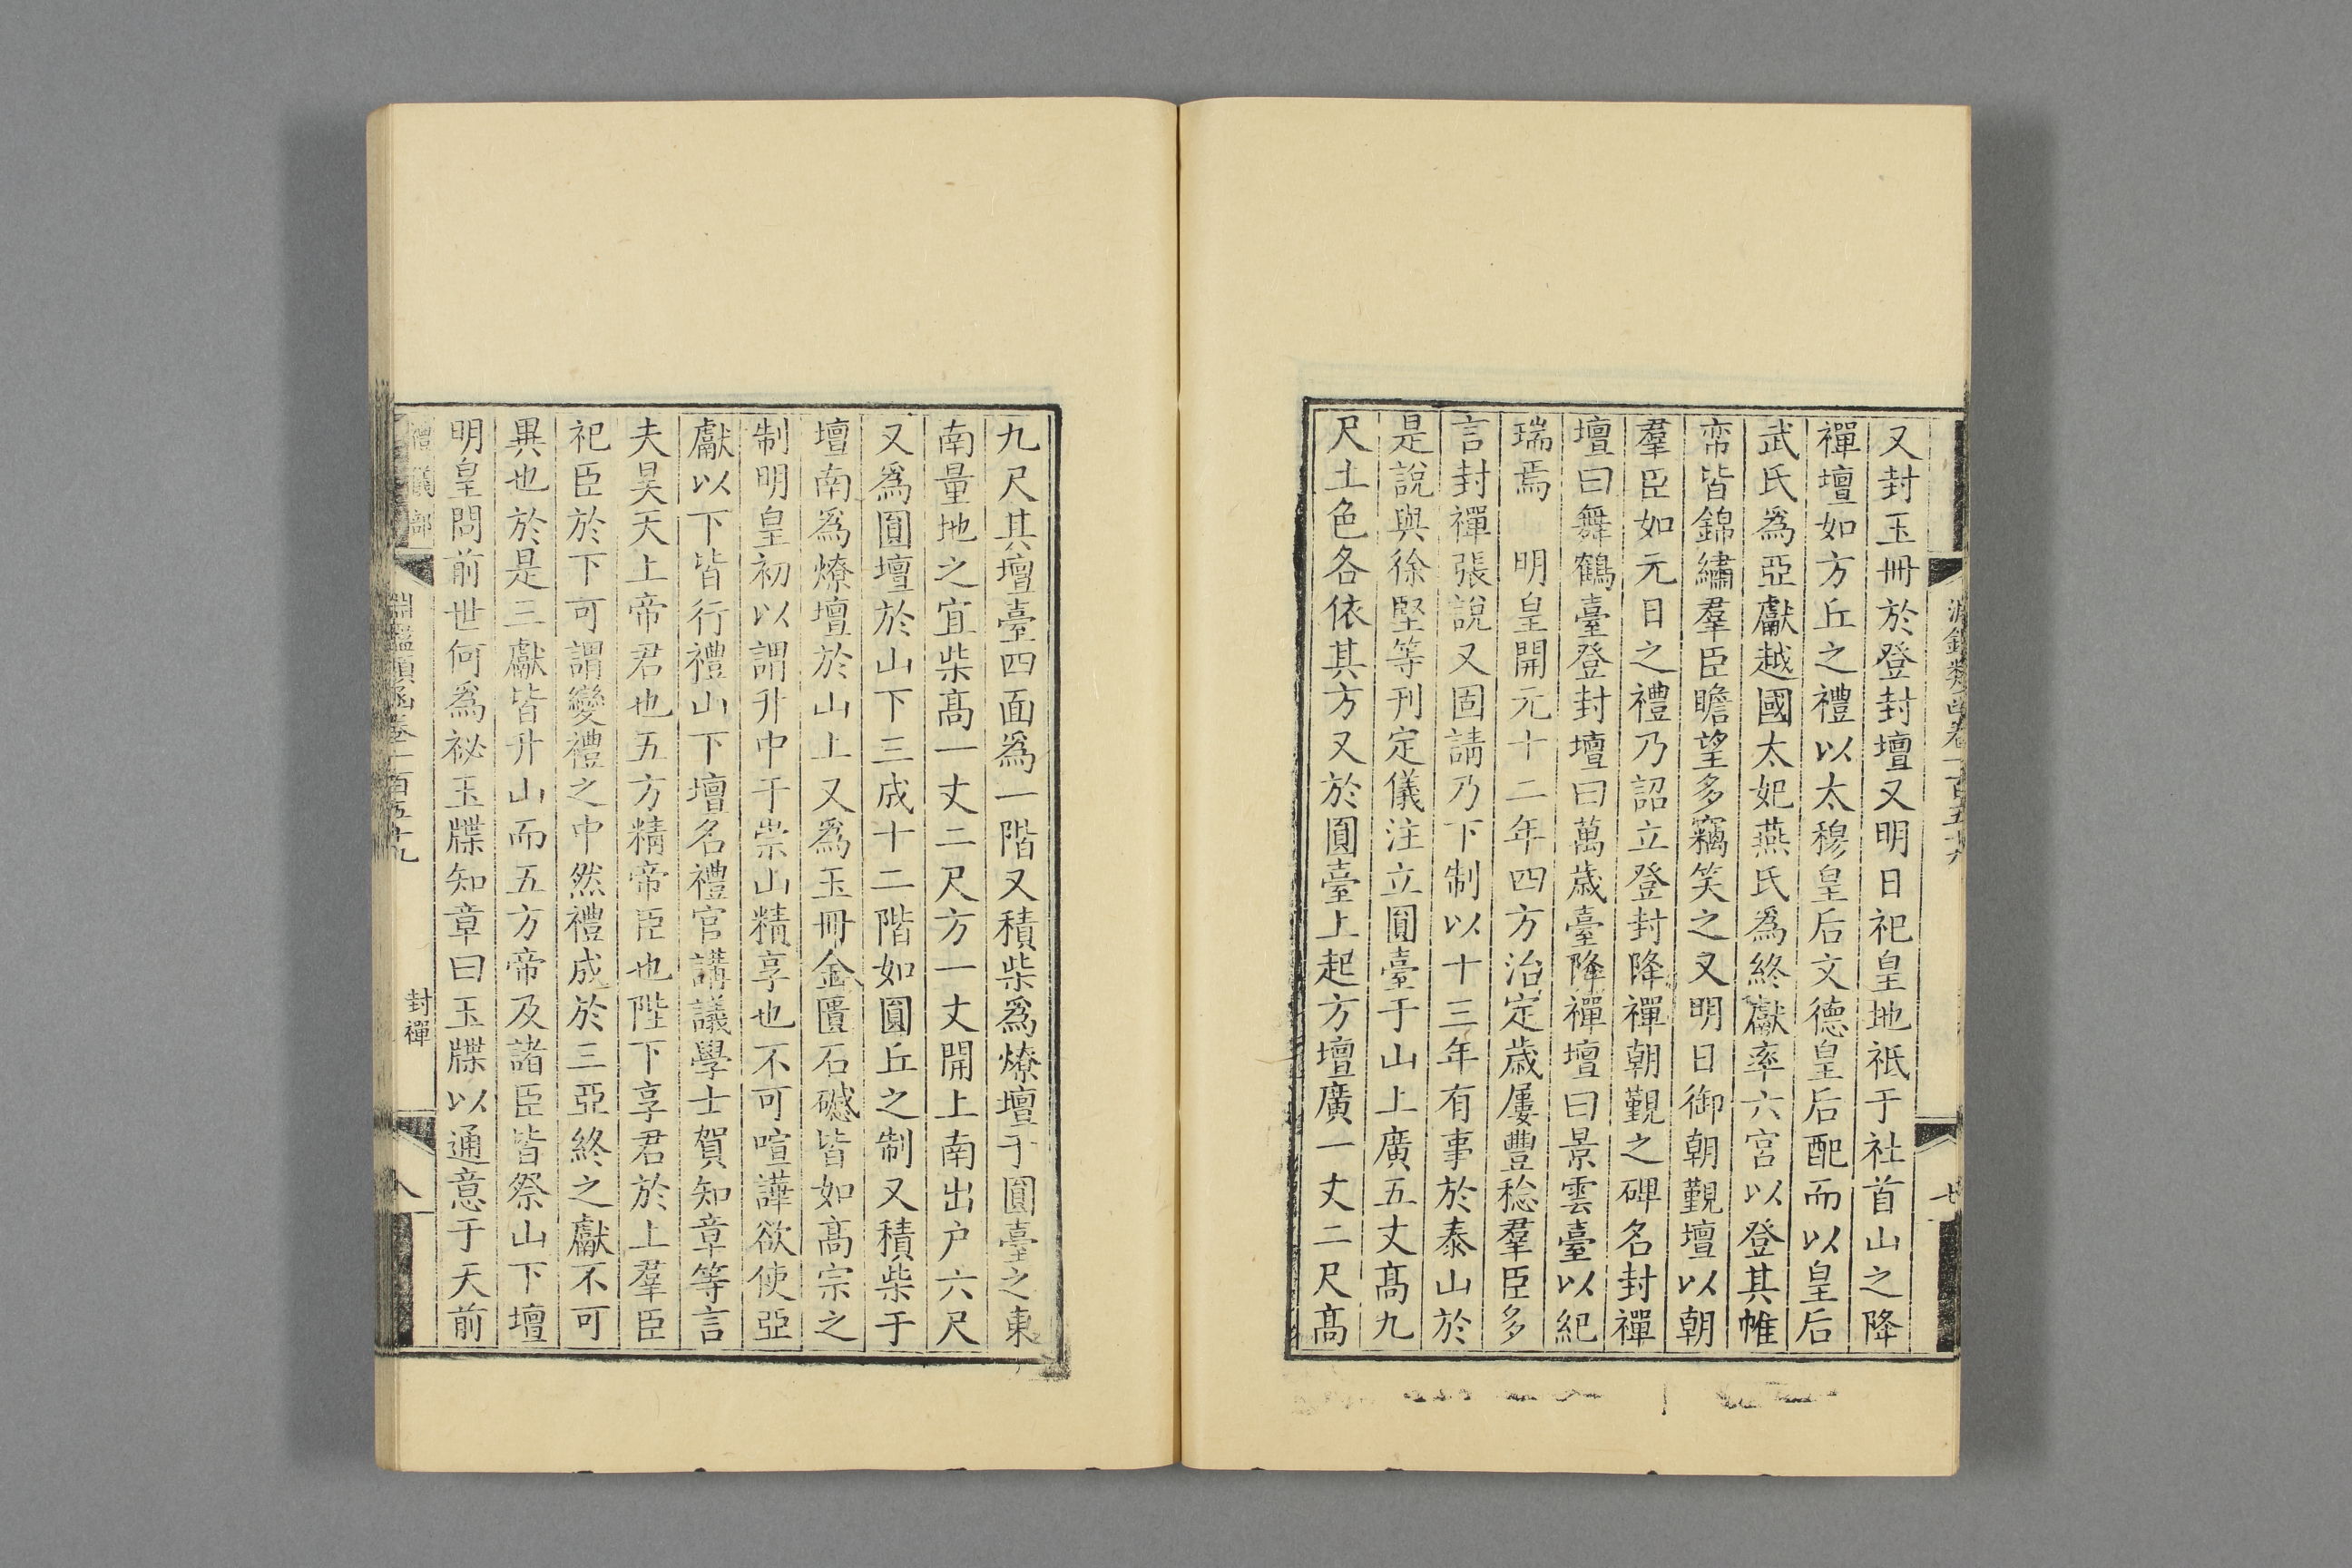 淵鑑類函卷一百五十九
七
又封玉冊於登封壇又明日祀皇地祇于社首山之降
禪壇如方丘之禮以太穆皇后文德皇后配而以皇后
武氏爲亞獻越國太妃燕氏爲終獻率六宮以登其帷
帟皆錦繡羣臣瞻望多竊笑之又明日御朝覲壇以朝
羣臣如元日之禮乃詔立登封降禪朝覲之碑名封禪
壇曰舞鶴臺登封壇曰萬歲臺降禪壇曰景雲臺以紀
瑞焉　明皇開元十二年四方治定歲屢豐稔羣臣多
言封禪張說又固請乃下制以十三年有事於泰山於
是說與徐堅等刊定儀注立圓臺于山上廣五丈高九
尺土色各依其方又於圓臺上起方壇廣一丈二尺高
九尺其壇臺四面爲一階又積柴爲燎壇于圓臺之東
南量地之宜柴高一丈二尺方一丈開上南出户六尺
又爲圓壇於山下三成十二階如圓丘之制又積柴于
壇南爲燎壇於山上又爲玉冊金匱石䃭皆如高宗之
制明皇初以謂升中于崇山精享也不可喧譁欲使亞
獻以下皆行禮山下壇名禮官講議學士賀知章等言
夫昊天上帝君也五方精帝臣也陛下享君於上羣臣
祀臣於下可謂變禮之中然禮成於三亞終之獻不可
異也於是三獻皆升山而五方帝及諸臣皆祭山下壇
明皇問前世何爲祕玉牒知章曰玉牒以通意于天前
禮儀部
淵鑑類函卷一百五十九
封禪
八